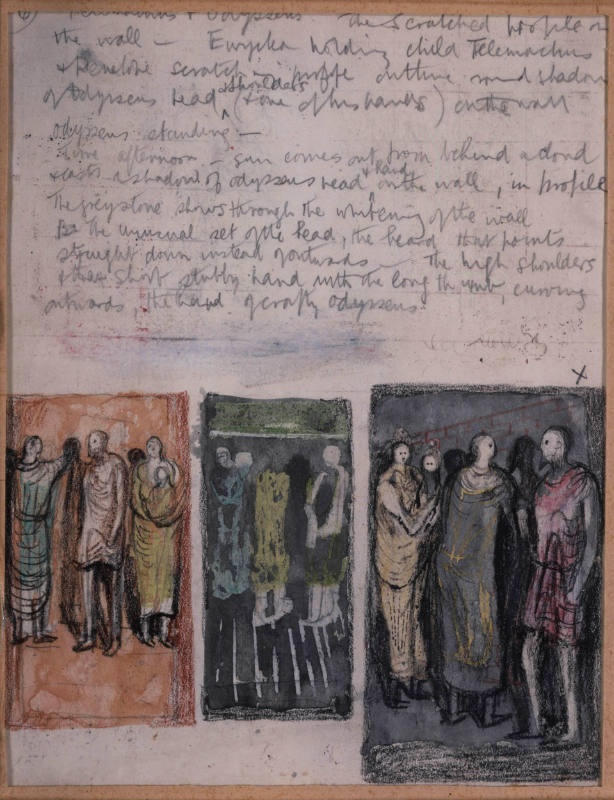 Telemachus + Odysseus The Scratched profile on
the wall – Euryclea holding child Telemachus
+ Penelope scratching profile outline round shadow
of Odysseus head + shoulders (+ one of his hands) on the wall
Odysseus standing –
Time afternoon – sun comes out from behind a cloud
+ casts a shadow of Odysseus head + hand on the wall, in profile
The grey stone shows through the whitening of the wall
the unusual set of the head, the beard that points
straight down instead of outwards – The high shoulders
+ the short stubby hand with the long thumb, curving
outwards, the hand of crafty Odysseus.
X